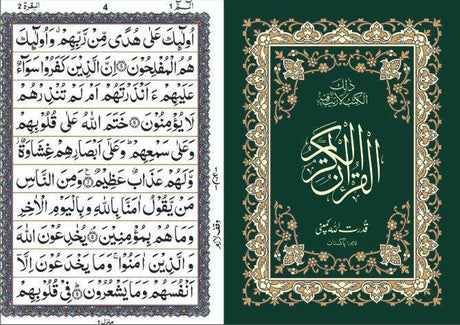 الٓمّٓ 1
4
البقرة 2
اُولٰٓئِكَ عَلٰى هُدًى مِّنْ رَّبِّهِمْ ۙ وَاُولٰٓئِكَ
هُمُ الْمُفْلِحُوْنَ ۝ اِنَّ الَّذِيْنَ كَفَرُوْا سَوَآءٌ
عَلَيْهِمْ ءَاَنْذَرْتَهُمْ اَمْ لَمْ تُنْذِرْهُمْ
لَا يُؤْمِنُوْنَ ۝ خَتَمَ اللّٰهُ عَلٰى قُلُوْبِهِمْ
وَعَلٰى سَمْعِهِمْ ؕ وَعَلٰٓى اَبْصَارِهِمْ غِشَاوَةٌ
وَّلَهُمْ عَذَابٌ عَظِيْمٌ ۝ وَمِنَ النَّاسِ
مَنْ يَّقُوْلُ اٰمَنَّا بِاللّٰهِ وَبِالْيَوْمِ الْاٰخِرِ
وَمَا هُمْ بِمُؤْمِنِيْنَ ۝ يُخٰدِعُوْنَ اللّٰهَ
وَالَّذِيْنَ اٰمَنُوْا ۚ وَمَا يَخْدَعُوْنَ اِلَّآ
اَنْفُسَهُمْ وَمَا يَشْعُرُوْنَ ۝ فِيْ قُلُوْبِهِمْ
وقف لازم
منزل 1
ذلك
الكتب لا ريب فيه
القرآن الكريم
قدرت اللہ کمپنی
لاہور پاکستان